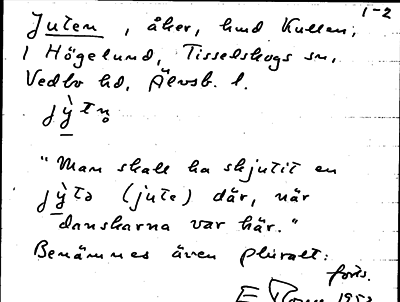 1-2
Juten, åker, hmd Kullen,
i Högelund, Tisselskogs sn,
Vedbo hd, Älvsb. l.
jỳtn̥
"Man skall ha skjutit en
jỳtə (jute) där, när
danskarna var här."
Benämnes även pluralt:
forts.